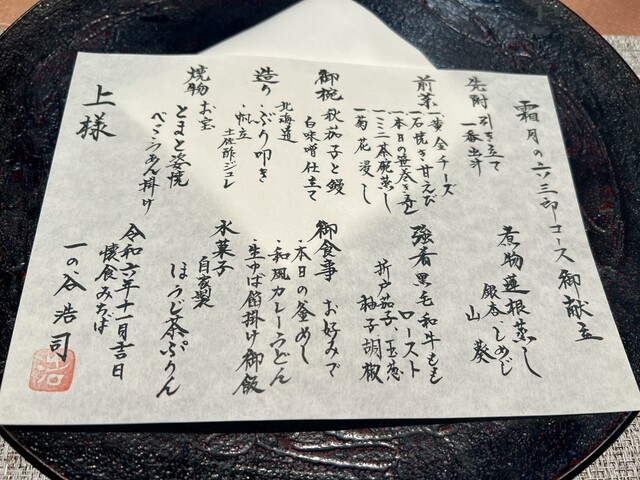 霜月の六三郎コース 御献立
先附 引き立て
一番出汁
前菜 一黄金チーズ
一石焼き甘えび
一本日の笹巻き寿し
一ミニ茶碗蒸し
一菊花浸し
御椀 秋茄子と鰻
白味噌仕立て
造り ・ぶり叩き
北海道
・帆立
土佐酢ジュレ
焼物 お宝
とまと姿焼
べっこうあん掛け
煮物 蓮根蒸し
銀杏、しめじ
山葵
強肴 黒毛和牛もも
ロースト
折戸茄子、玉葱
柚子胡椒
御食事 お好みで
・本日の釜めし
・和風カレーうどん
・生ゆば餡掛け御飯
水菓子
自家製
ほうじ茶ぷりん
令和六年十一月吉日
懐食みちば
一の谷浩司
上様